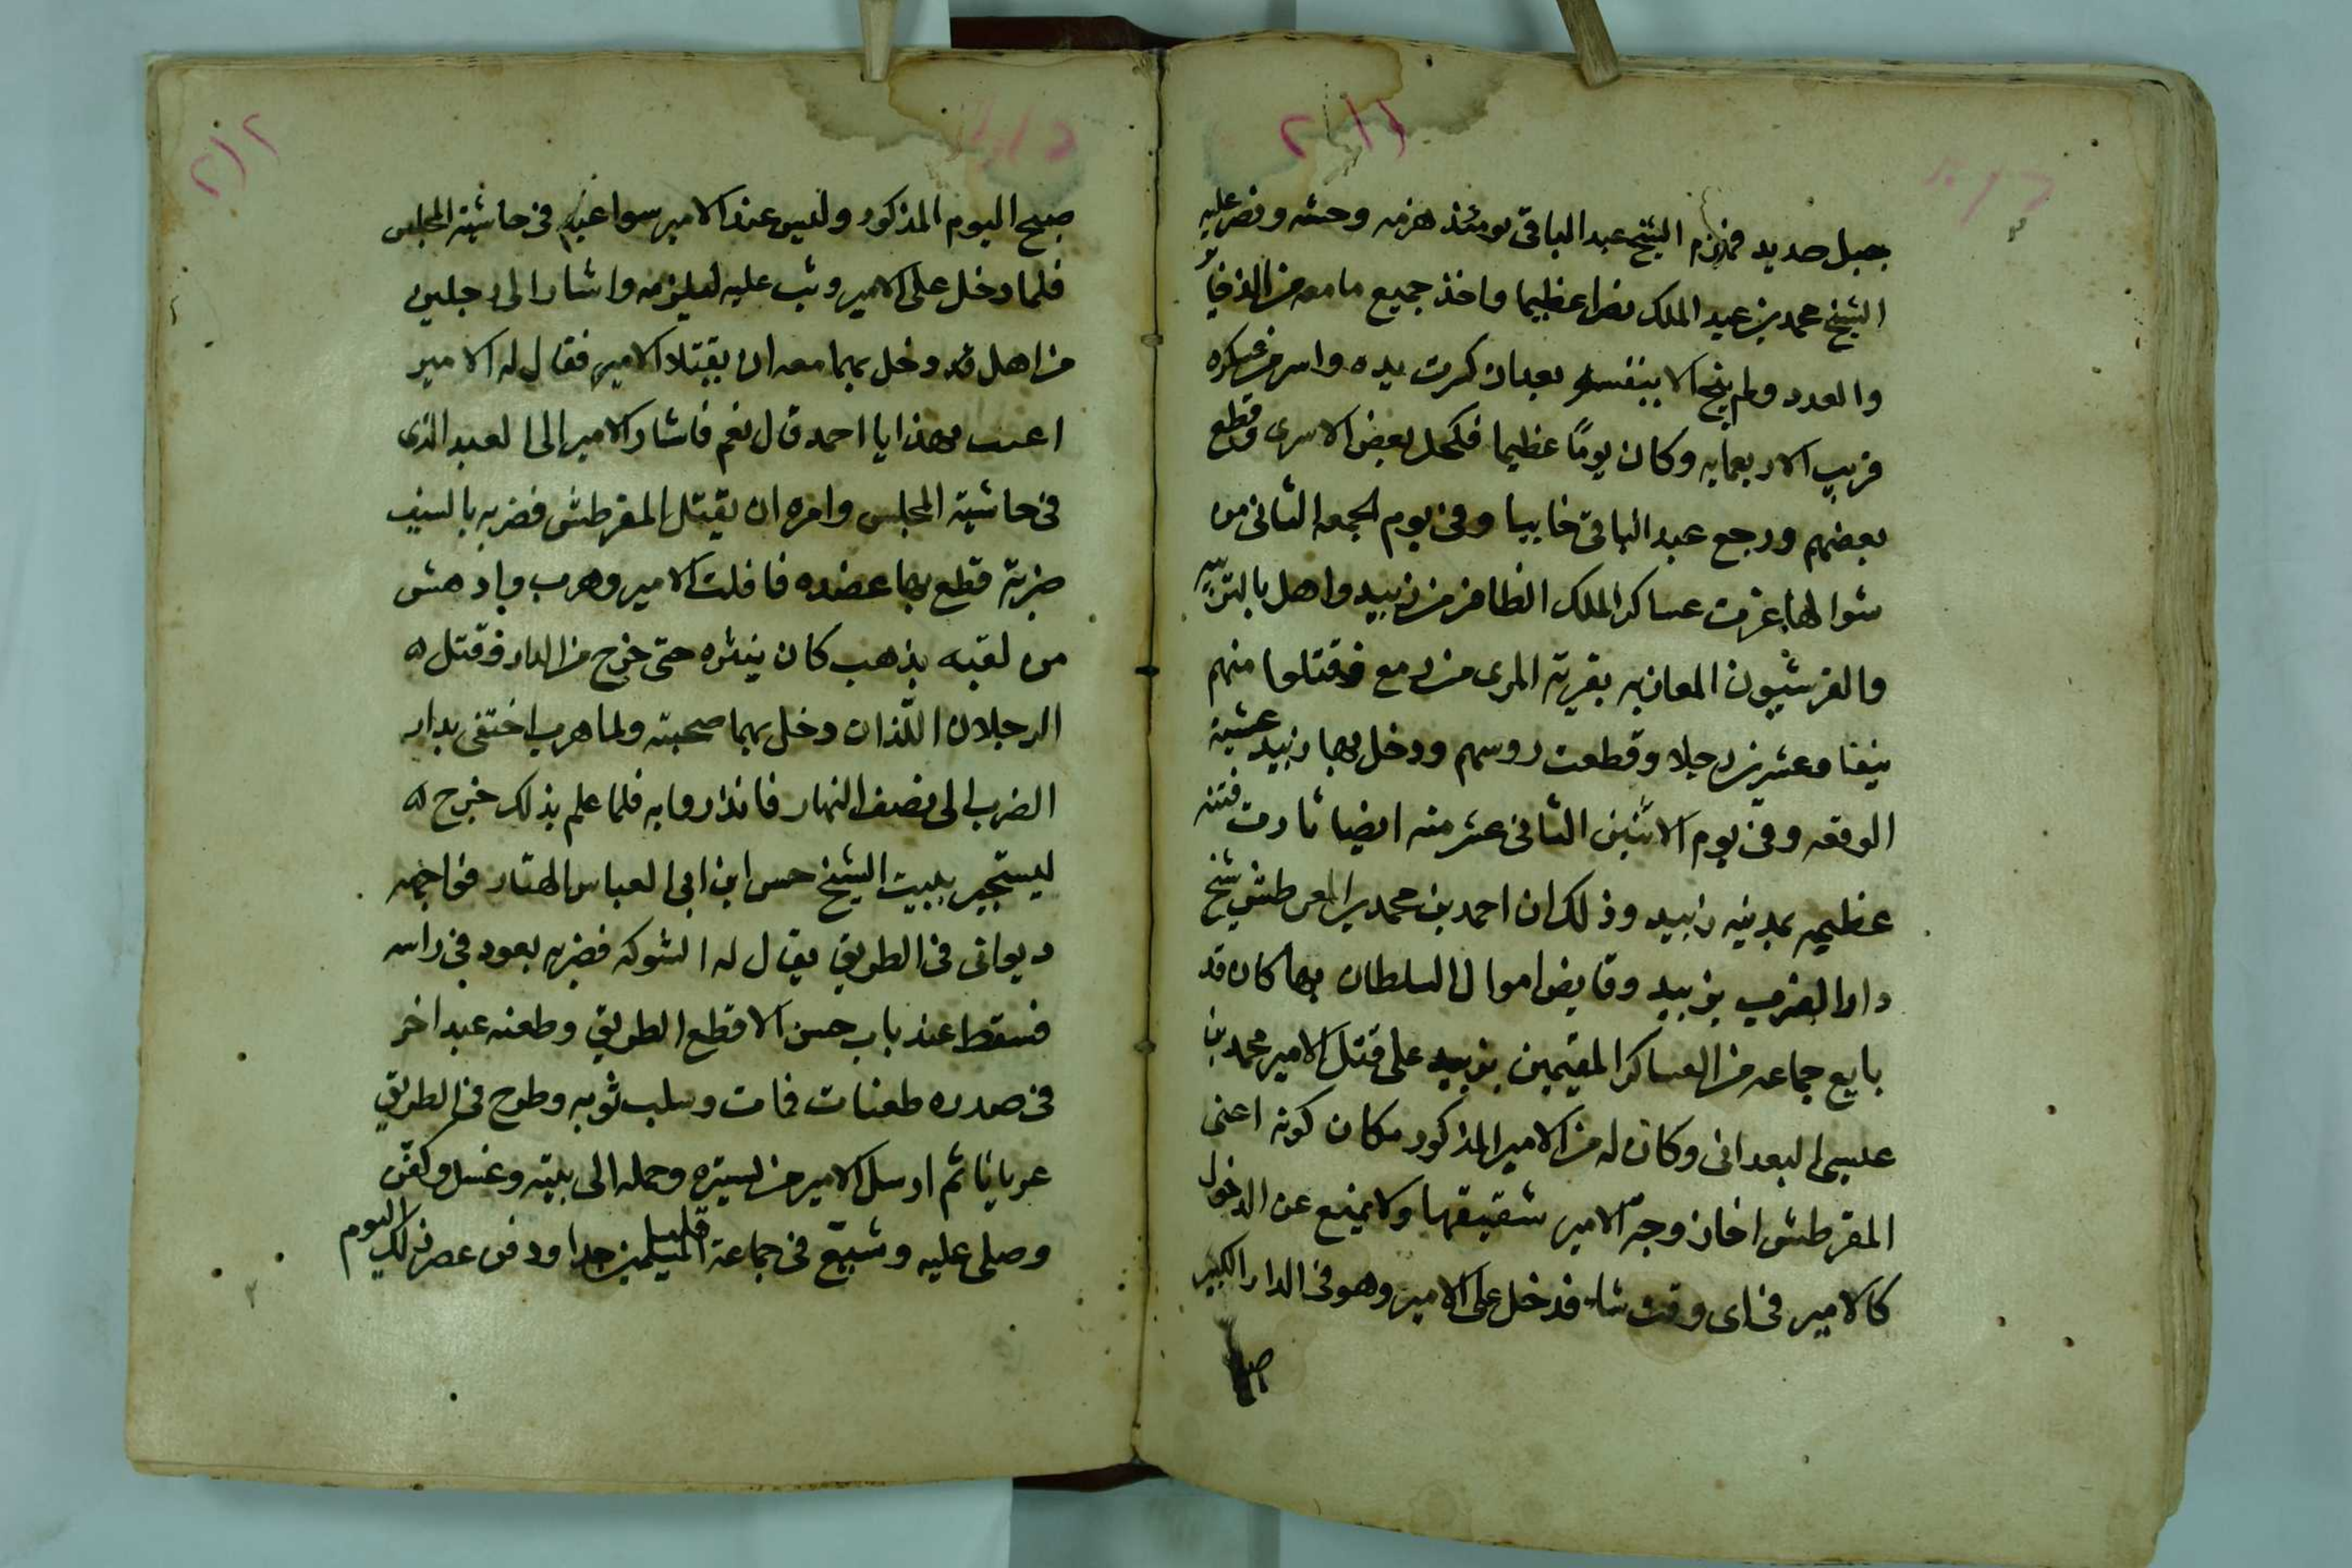 ٢١١
جبل حديد فهزم الشيخ عبد الباقي يومئذ هزيمه وحشه ونصر عليه
الشيخ محمد بن عبد الملك نصرا عظيما واخذ جميع ما معه من الذخاير
والعدد ولم ينج الا بنفسه بعد ان كسرت يده واسر من عسكره
قريب الاربعمايه وكان يومًا عظيما فكحل بعض الاسرى وقطع
بعضهم ورجع عبد الباقي خايبا وفي يوم الجمعه الثاني من
شوالها غزت عساكر الملك الظافر من زبيد واهل بالتربيه
والقرشيون المعازبه بقرية المرى من رمع فقتلوا منهم
نيفا وعشرين رجلا وقطعت روسهم ودخل بها زبيد عشية
الوقعه وفي يوم الاثنين الثاني عشر منه ايضا ثارت فتنه
عظيمه بمدينه زبيد وذلك ان احمد بن محمد المقرطش شيخ
دار الضرب بزبيد وقابض اموال السلطان بها كان قد
بايع جماعه من العساكر المقيمين بزبيد على قتل الامير محمد بن
عيسى البعداني وكان له من الامير المذكور مكان كونه اعنى
المقرطش اخا زوجة الامير شقيقها ولا يمنع عن الدخول
كالامير في اى وقت شاء فدخل على الامير وهو في الدار الكبير
٢١٢
صبح اليوم المذكور وليس عند الامير سوا عبد في حاشية المجلس
فلما دخل على الامير وثب عليه ليلزمه واشار الى رجلين
من اهل قد دخل بهما معه ان يقتلا الامير فقال له الامير
بهذا يا احمد قال نعم فاشار الامير الى العبد الذى
في حاشية المجلس وامره ان يقتل المقرطش فضربه بالسيف
ضربة قطع بها عضده فافلت الامير وهرب وادهش
من لقيه بذهب كان ينثره حتى خرج من الدار وقتل
الرجلان اللّذان دخل بهما صحبته ولما هرب اختفى بدار
الضرب الى نصف النهار فانذروا به فلما علم بذلك خرج
ليستجير ببيت الشيخ حسن ابن ابى العباس الهتار فواجهه
ديوانى في الطريق يقال له الشوكه فضربه بعود في راسه
فسقط عند باب حسن الاقطع الطريق وطعنه عبد اخر
في صدره طعنات فمات وسلب ثوبه وطرح في الطريق
عريانا ثم ارسل الامير من ستره وحمله الى بيته وغسل وكفّن
وصلى عليه وشيّع في جماعة المسلمين جدا ودفن عصر ذلك اليوم